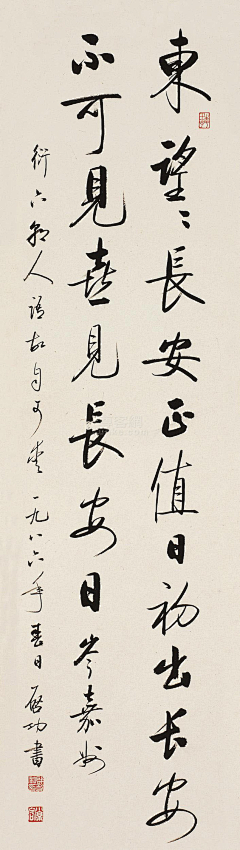 東望〻長安正值日初出長安
不可見喜見長安日岑嘉州
衍六朝人語故自可愛一九八六年春日啟功書